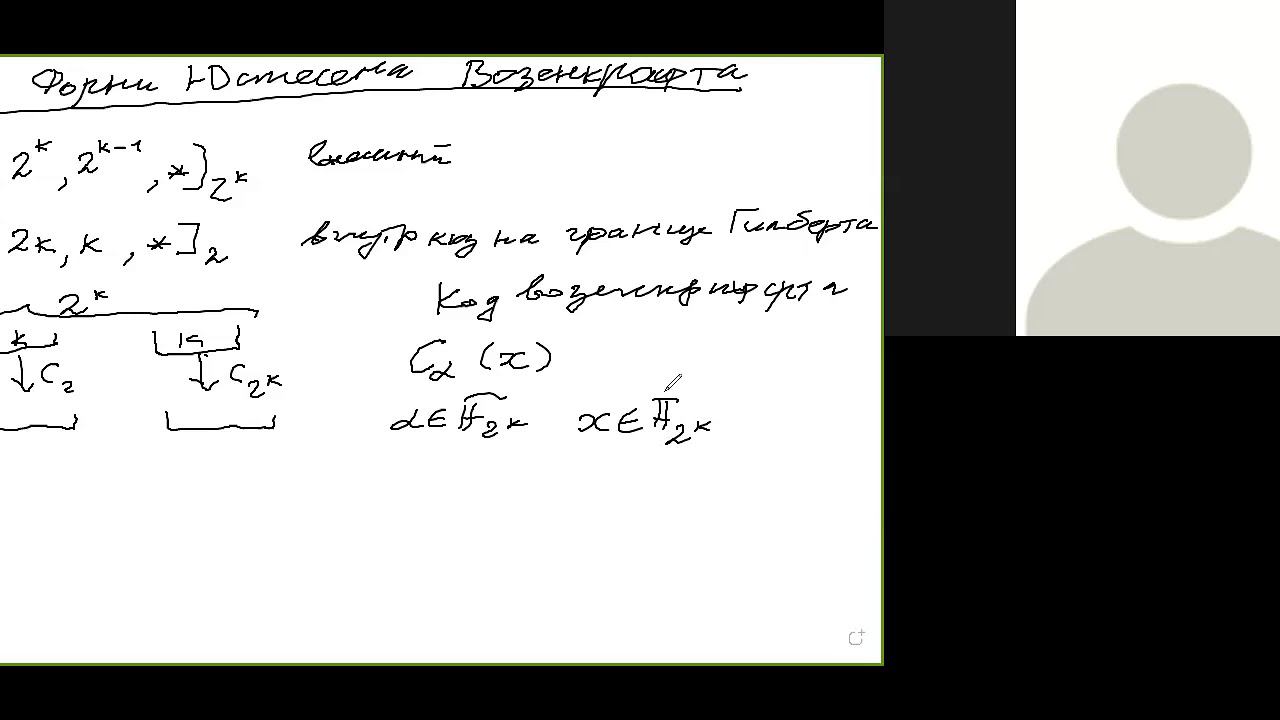 Форни Юстесена Возенкрафта
2^k, 2^{k-1}, *]_{2^k} внешний
2k, k, *]_2 внутр код на границе Гилберта
2^k Код возенкрафта
k k C_α(x)
↓ C_2 ↓ C_{2^k}
α ∈ F_{2^k} x ∈ F_{2^k}